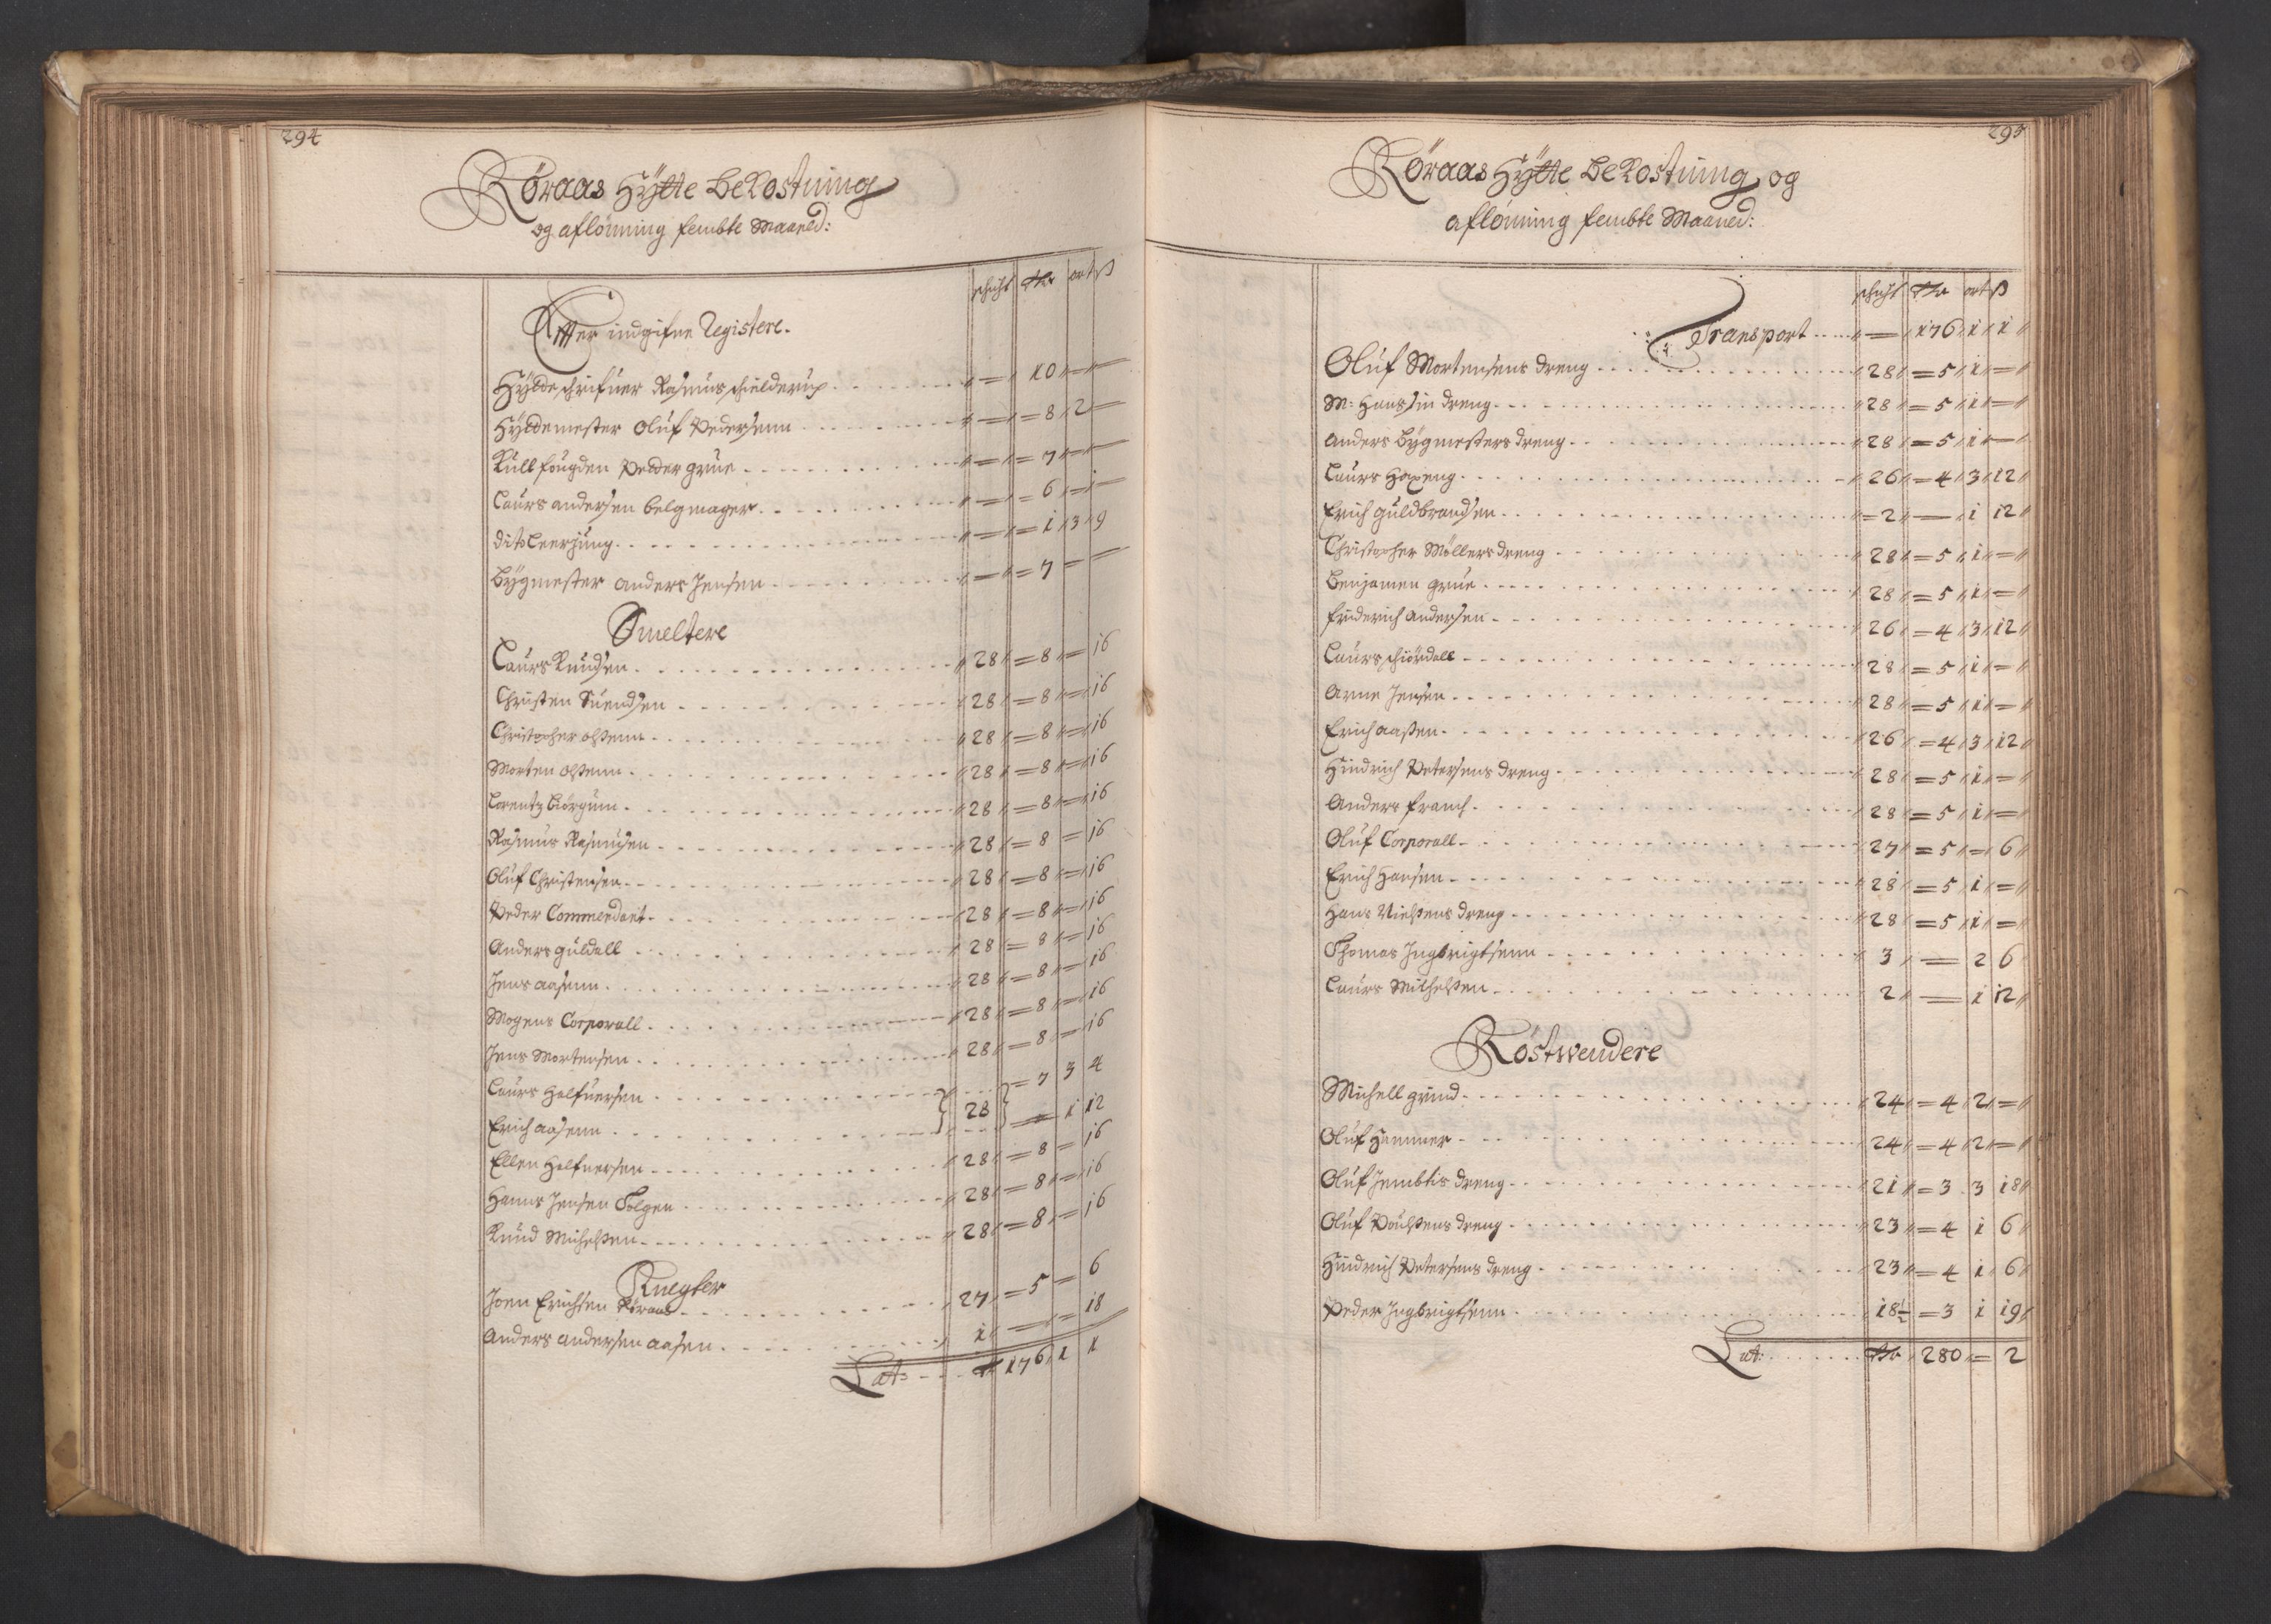 294
Röraas Hÿtte bekostning
og aflönning fembte Maaned:
schicht dlr ort ß
Effter indgifne Registere.
Hÿtteschrifuer Rasmus schielderup 10
Hÿttemester Oluf Pedersenn 8 2
Kull fougden Pedder grue 7
Laurs andersen belgmager 6
dito leerjung 1 3 9
bÿgmester anders Jensen 7
Smeltere
Laurs Knudsen 28 8 16
Christen Suendsen 28 8 16
Christopher olßenn 28 8 16
Morten olßenn 28 8 16
Lorentz biörgum 28 8 16
Rasmus Rasmusen 28 8 16
Oluf Christensen 28 8 16
Peder Commendant 28 8 16
Anders guldall 28 8 16
Jens aasenn 28 8 16
Mogens Corporall 28 8 16
Jens Mortensen 28 8 16
Laurs Halfuersen 7 3 4
28
Erich aasenn 1 12
Ellen Halfuersen 28 8 16
Hanns Jensen Solgen 28 8 16
Knud Michelßen 28 8 16
Knegter
Joen Erichsen Röraas 27 5 6
Anders andersen aasen 1 18
Lat: dlr 176 1 1
295
Röraas Hÿtte bekostning og
aflönning fembte Maaned:
schicht dlr ort ß
Transport 176 1 1
Oluf Mortensens dreng 28 5 1
M: Hans sin dreng 28 5 1
anders bÿgmesters dreng 28 5 1
Laurs Hoxeng 26 4 3 12
Erich guldbrandsen 2 1 12
Christopher Möllers dreng 28 5 1
benjamen grue 28 5 1
friderich andersen 26 4 3 12
Laurs schiördall 28 5 1
Arne Jensen 28 5 1
Erich aaßen 26 4 3 12
Hindrich Petersens dreng 28 5 1
Anders franch 28 5 1
Oluf Corporall 27 5 6
Erich Hansen 28 5 1
Hans Nielßens dreng 28 5 1
Thomas Ingbrigtsenn 3 2 6
Laurs Michelßen 2 1 12
Röstwendere
Michell grind 24 4 2
Oluf Hammer 24 4 2
Oluf Jembtis dreng 21 3 3 18
Oluf Poulßens dreng 23 4 1 6
Hindrich Petersens dreng 23 4 1 6
Peder Ingbrigtsenn 18½ 3 1 19
Lat: dlr 280 2